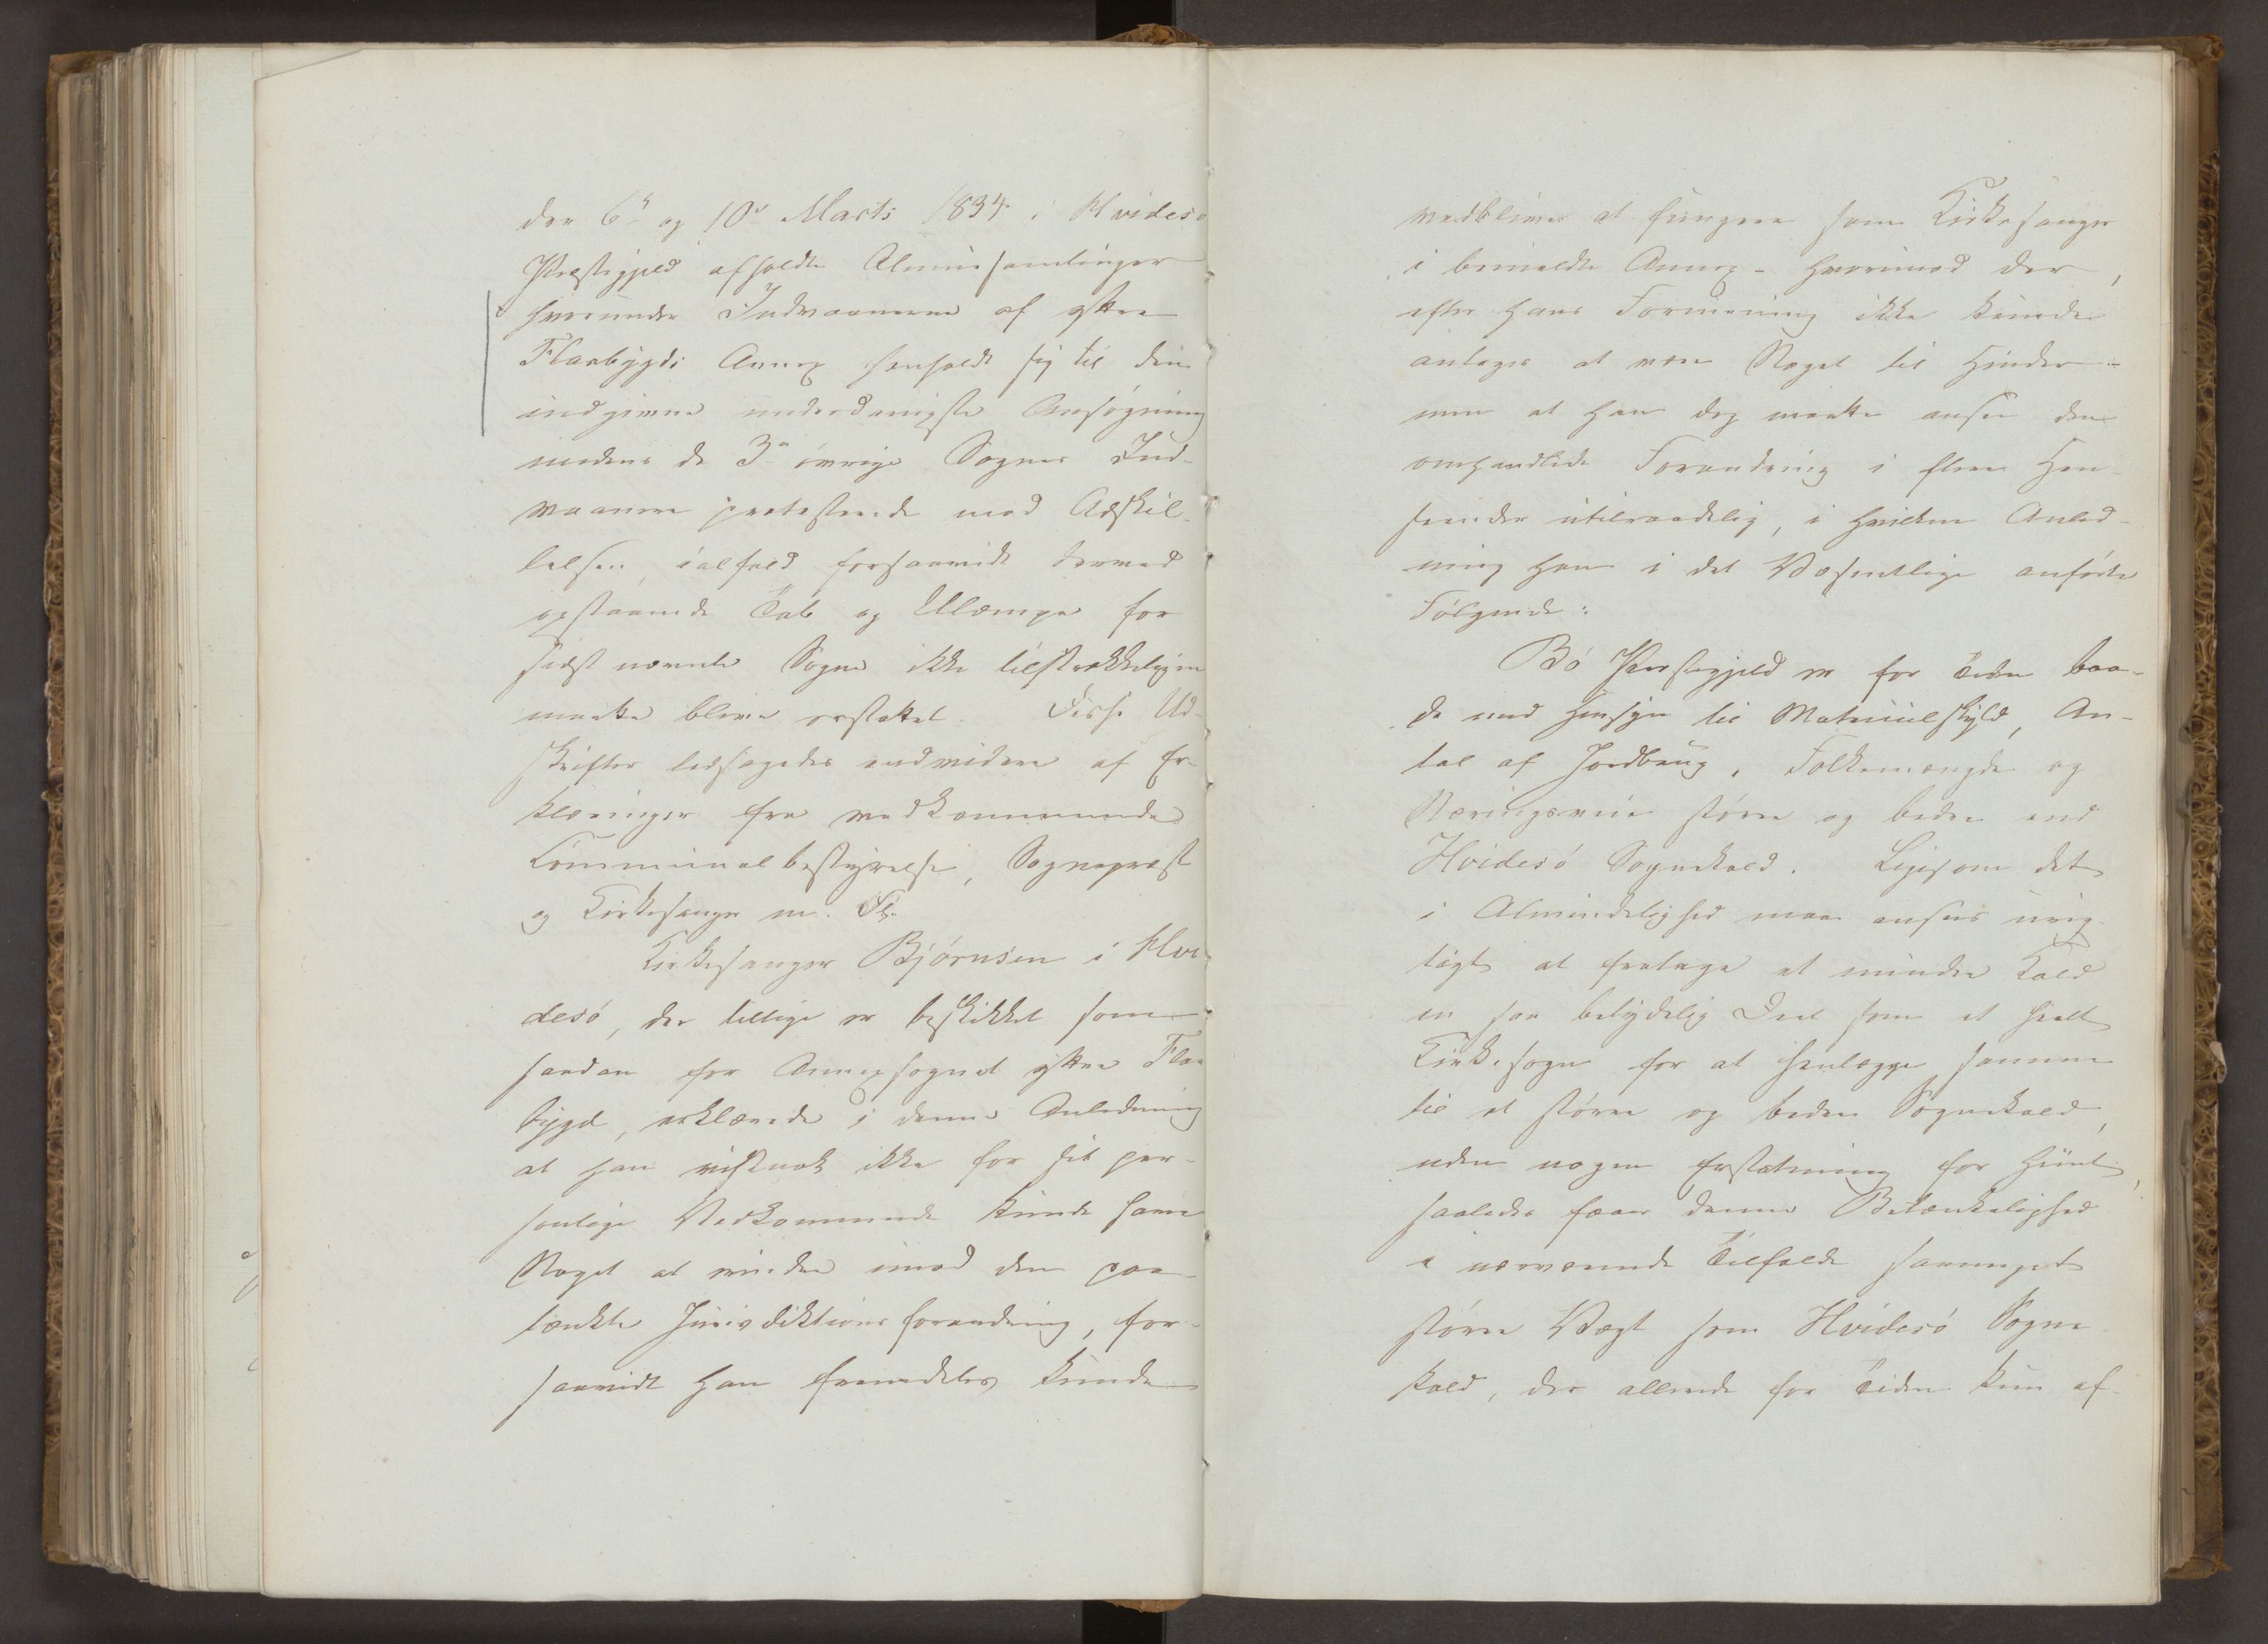 den 6te og 10de Marts 1834 i Hvidesö
Præstegjeld afholdte Almuesamlinger
hvorunder Indvaanerne af ytre
Flaabygds Annex henholdt sig til den
indgivne underdanigste Ansøgning
medens de 3de øvrige Sognes Ind-
vaanere protesterede mod Adskil-
lelsen, ialfald forsaavidt dermed
opstaaende Tab og Ulempe for
sidst nævnte Sogne ikke tilstrækkeligen
maatte blive erstattet. Disse Ud-
skrifter ledsagedes endvidere af Er-
klæringer fra vedkommende
Communalbestyrelse, Sognepræst
og Kirkesanger m. Fl.
Kirkesanger Björnsen i Hvi-
desö, der tillige er beskikket som
saadan for Annexsognet ytre Flaa
bygd, erklærede i denne Anledning
at han vistnok ikke for sit per-
sonlige Vedkommende kunde have
Noget at erindre imod den paa-
tænkte Jurisdiktionsforandring, for-
saavidt han fremdeles kunde
vedblive at fungere som Kirkesanger
i bemeldte Annex - hvorimod der,
efter hans Formening ikke kunde
antages at være Noget til Hinder -
men at han dog maatte ansee den
omhandlede Forandring i flere Hen-
seender utilraadelig, i hvilken Anled-
ning han i det Væsentlige anførte
Følgende:
Bö Præstegjeld er for Tiden baa-
de med Hensyn til Matriculskyld, An-
tal af Jordbrug, Folkemængde og
Næringsveie større og bedre end
Hvidesö Sognekald. Ligesom det
i Almindelighed maa ansees urig-
tigt at fratage et mindre Kald
en saa betydelig Deel som et heelt
Kirkesogn for at henlægge samme
til et større og bedre Sognekald,
uden nogen Erstatning for Hiint,
saaledes faaer denne Betænkelighed
i nærværende Tilfælde saameget
større Vægt som Hvidesö Sogne-
kald, der allerede for Tiden kun af-